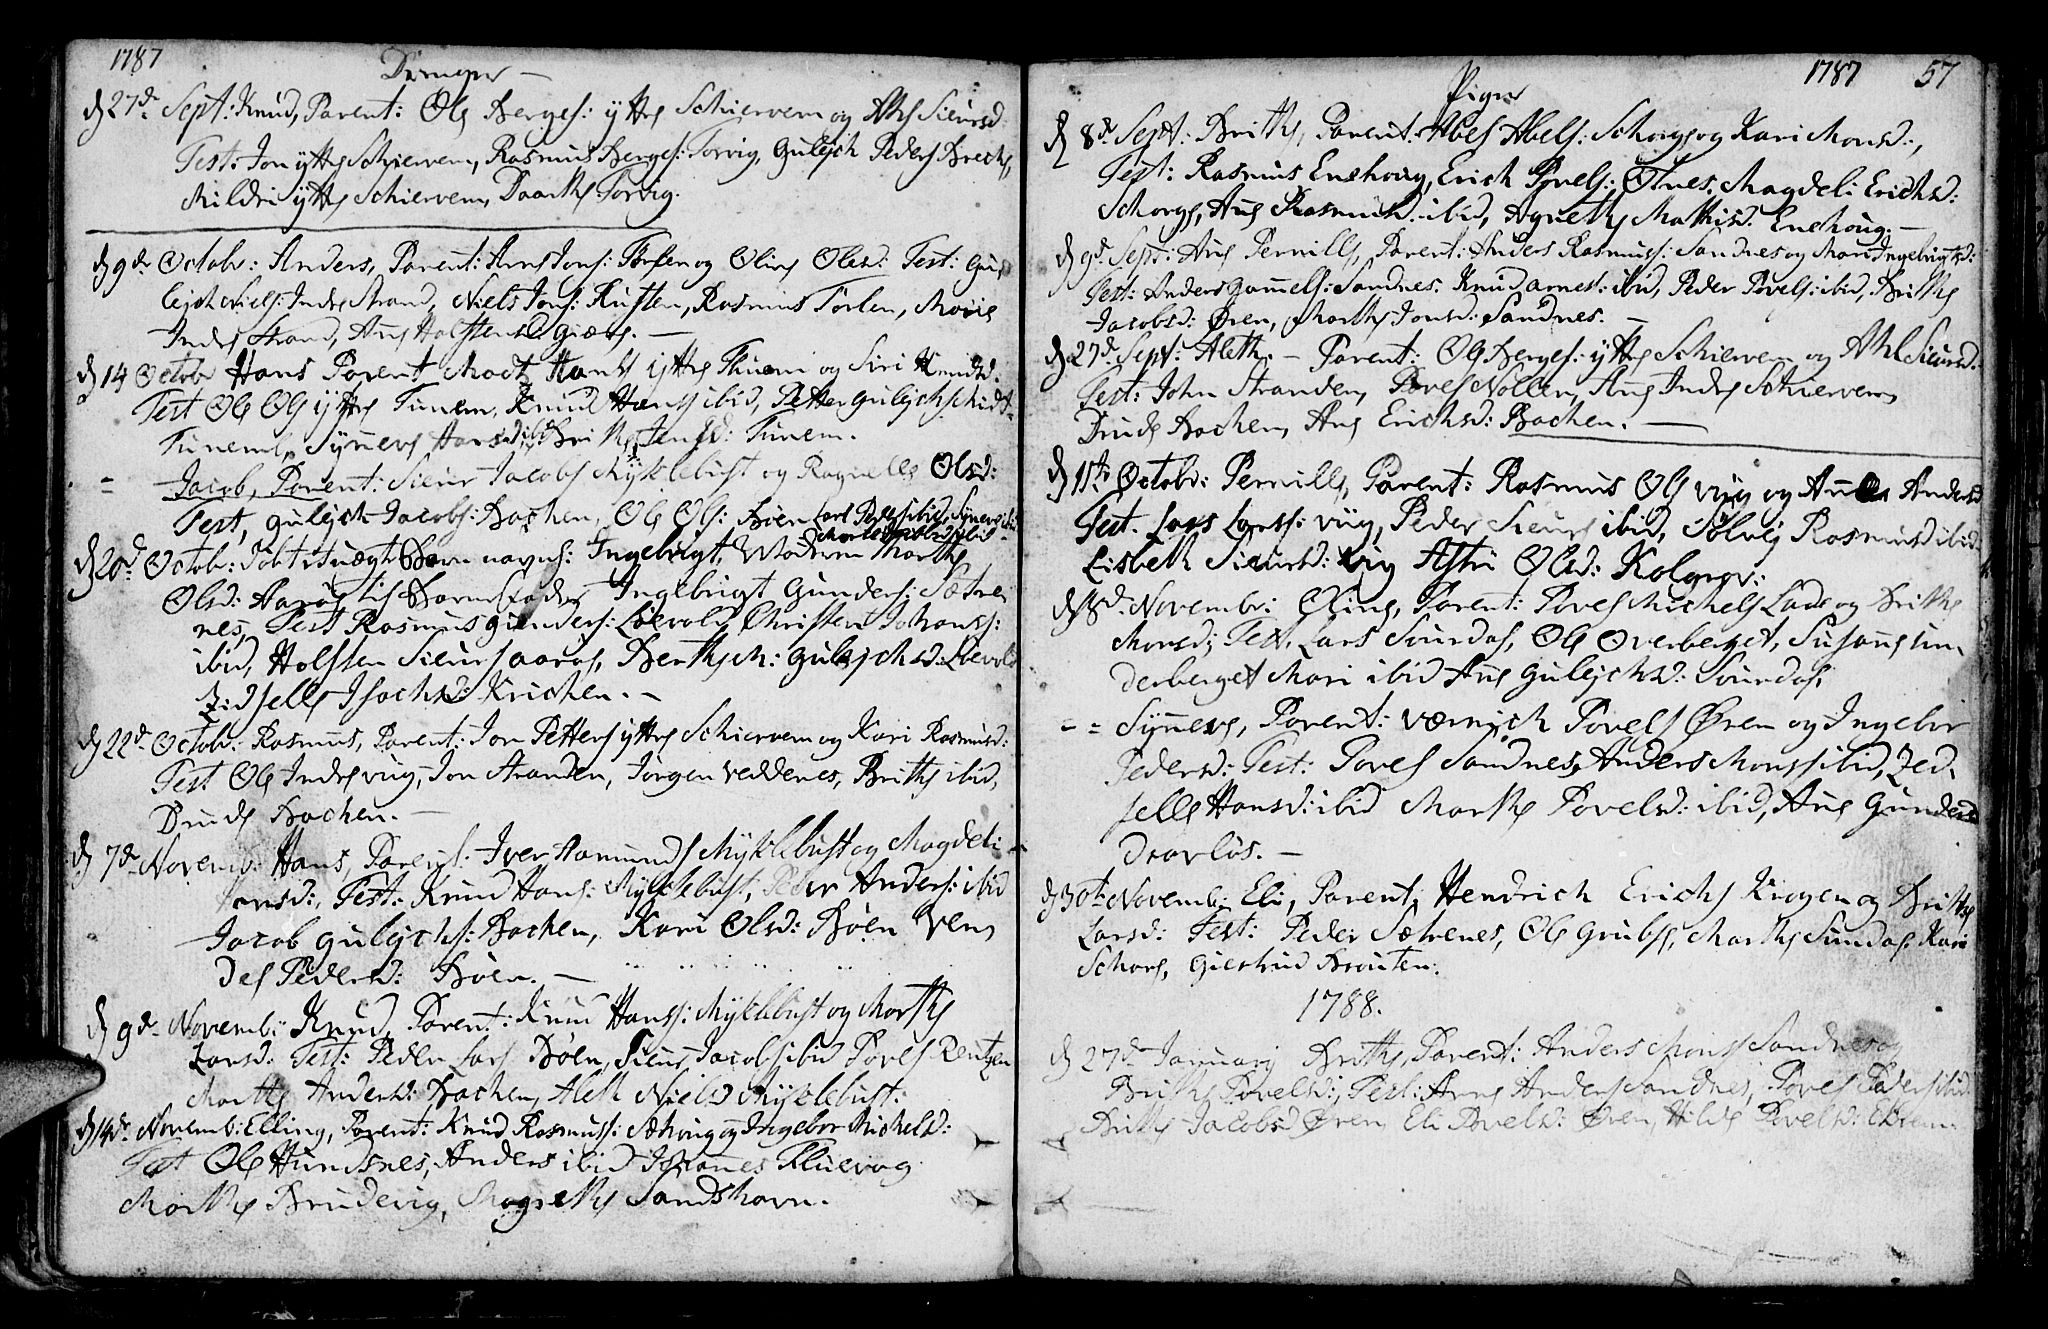 1787
Drenger —
d 27de Sept: Knud, Parent: Ole Berges: yttre Schiervem og Athe Siursd
Test: Jon yttre Schiervem, Rasmus Berges: Torvig, Gulejch Peders
Mildri yttre Schiervem, Torvig.
d 9de Octobr: Anders, Parent: Arne Jons: og Oline Olsd: Test: Gu-
lejch Niels: Indre Strand, Niels Jons: Rusten, Rasmus Torlen, Marie
Indre Strand, Ane Holstensd —
d 14 Octob Hans Parent Madz Hans yttre Tunem og Siri Knudsd.
Test Ole Ole yttre Tunem, Knud Hanss ibid, Petter Gulejch
Tuneml, Synneve Hansd ibid Brithe Jensd: Tunem.
= Jacob, Parent: Siur Jacobs Myklebust og Ragnelle Olsd:
Test, Gulejch Jacobs: Bachen, Ole Ols: Bøen Lars Peders ibid, Synneve ibid
d 20d Octob: Barn navns: Ingebrigt, Modren Marthe
Olsd: Aarøe Barnefader Ingebrigt Gunders: Sætre
nes, Test Rasmus Gunders: Løevold Christen Johans:
ibid, Holsten Siurs Aarøe, Berthe Gulejchsd: Løevold
Zidselle Isachsd: Krichen. —
d 22d Octob: Rasmus, Parent: Jon Petters yttre Schiervem og Kari Rasmusd:
Test Ole Indre Viig, Jon Stranden, Jørgen Veddenes, Brithe ibid,
Drude Bachen. —
d 7d Novemb: Hans, Parent: Iver Aamunds Myklebust og Magdeli
Hansd:, Test: Knud Hans: Myklebust, Peder Anders: ibid
Jacob Gulejchs: Bachen, Kari Olsd: Bøen Ven,
del Pedersd: Bøen. —
d 9de Novemb: Knud, Parent: Knud Hanss: Myklebust og Marthe
Larsd: Test: Peder Lars Bøen, Siur Jacobs ibid Povel Rentzen
Marthe Andersd: Bachen, Aleth Nielsd Myklebust:
d 14de Novemb: Elling, Parent: Knud Rasmuss: og Ingebor Michelsd:
Test Ole Hundsnes, Anders ibid Johannes Fluevog
Marthe Brudevig, Magrethe Sandshavn.
1787 57
Piger
d 8de Sept: Brithe, Parent: Abel Abels: Schorge og Kari Monsd:,
Test: Rasmus Enehoug, Erich Povels: Otnes, Magdeli Erichsd:
Schorge, Ane Rasmusd. ibid, Agnethe Mathisd. Enehoug. —
d 9d. Sept: Ane Pernille, Parent: Anders Rasmuss: Sandnes og Mari Ingebrigtsd:
Test: Anders Gammels: Sandnes. Knud Arnes: ibid, Peder Povels: ibid, Brithe
Jacobsd: Øren, Marthe Jonsd: Sandnes. —
d 27d. Sept: Alethe. — Parent: Ole Berges: yttre Schiervem og Athe Siursd.
Test: John Stranden, Povel Nollen, Ane Indre Schiervem,
Drude Bachen, Ane Erichsd: Bachen. —
d 11te Octobr: Pernille, Parent: Rasmus Ole Viig og Anne Andersd
Test. Lars Larss: Viig, Peder Siurs ibid, Solvej Rasmusd ibid:
Lisbeth Siursd: Viig Astri Olsd: Kolgrov:
d 8d. Novembr: Oline, Parent: Povel Michels Lade og Brithe
Monsd; Test, Lars Surdal, Ole Overberget, Susane Un-
derberget Mari ibid Ane Gulejchsd: Surdal,
- = Synneve, Parent: Værnich Povels Øren og Ingebor
Pedersd: Test: Povel Sandnes, Anders Monss ibid, Zed-
selle Hansd: ibid Marthe Povelsd: ibid, Ane Gundersd
Dravløs. —
d 30te Novemb: Eli, Parent: Hendrich Erichs Krogen og Brithe
Larsd: Test: Peder Sætrenes, Ole Grubse, Marthe Sundal: Kari
Schare, Giertrud Brouten.
1788.
d 27de Januarij Brithe, Parent: Anders Monss Sandnes og
Brithe Povelsd:, Test: Arne Anders Sandnes, Povel Peders ibid
Brithe Jacobsd Øren, Eli Povelsd: Øren, Hilde Povelsd: